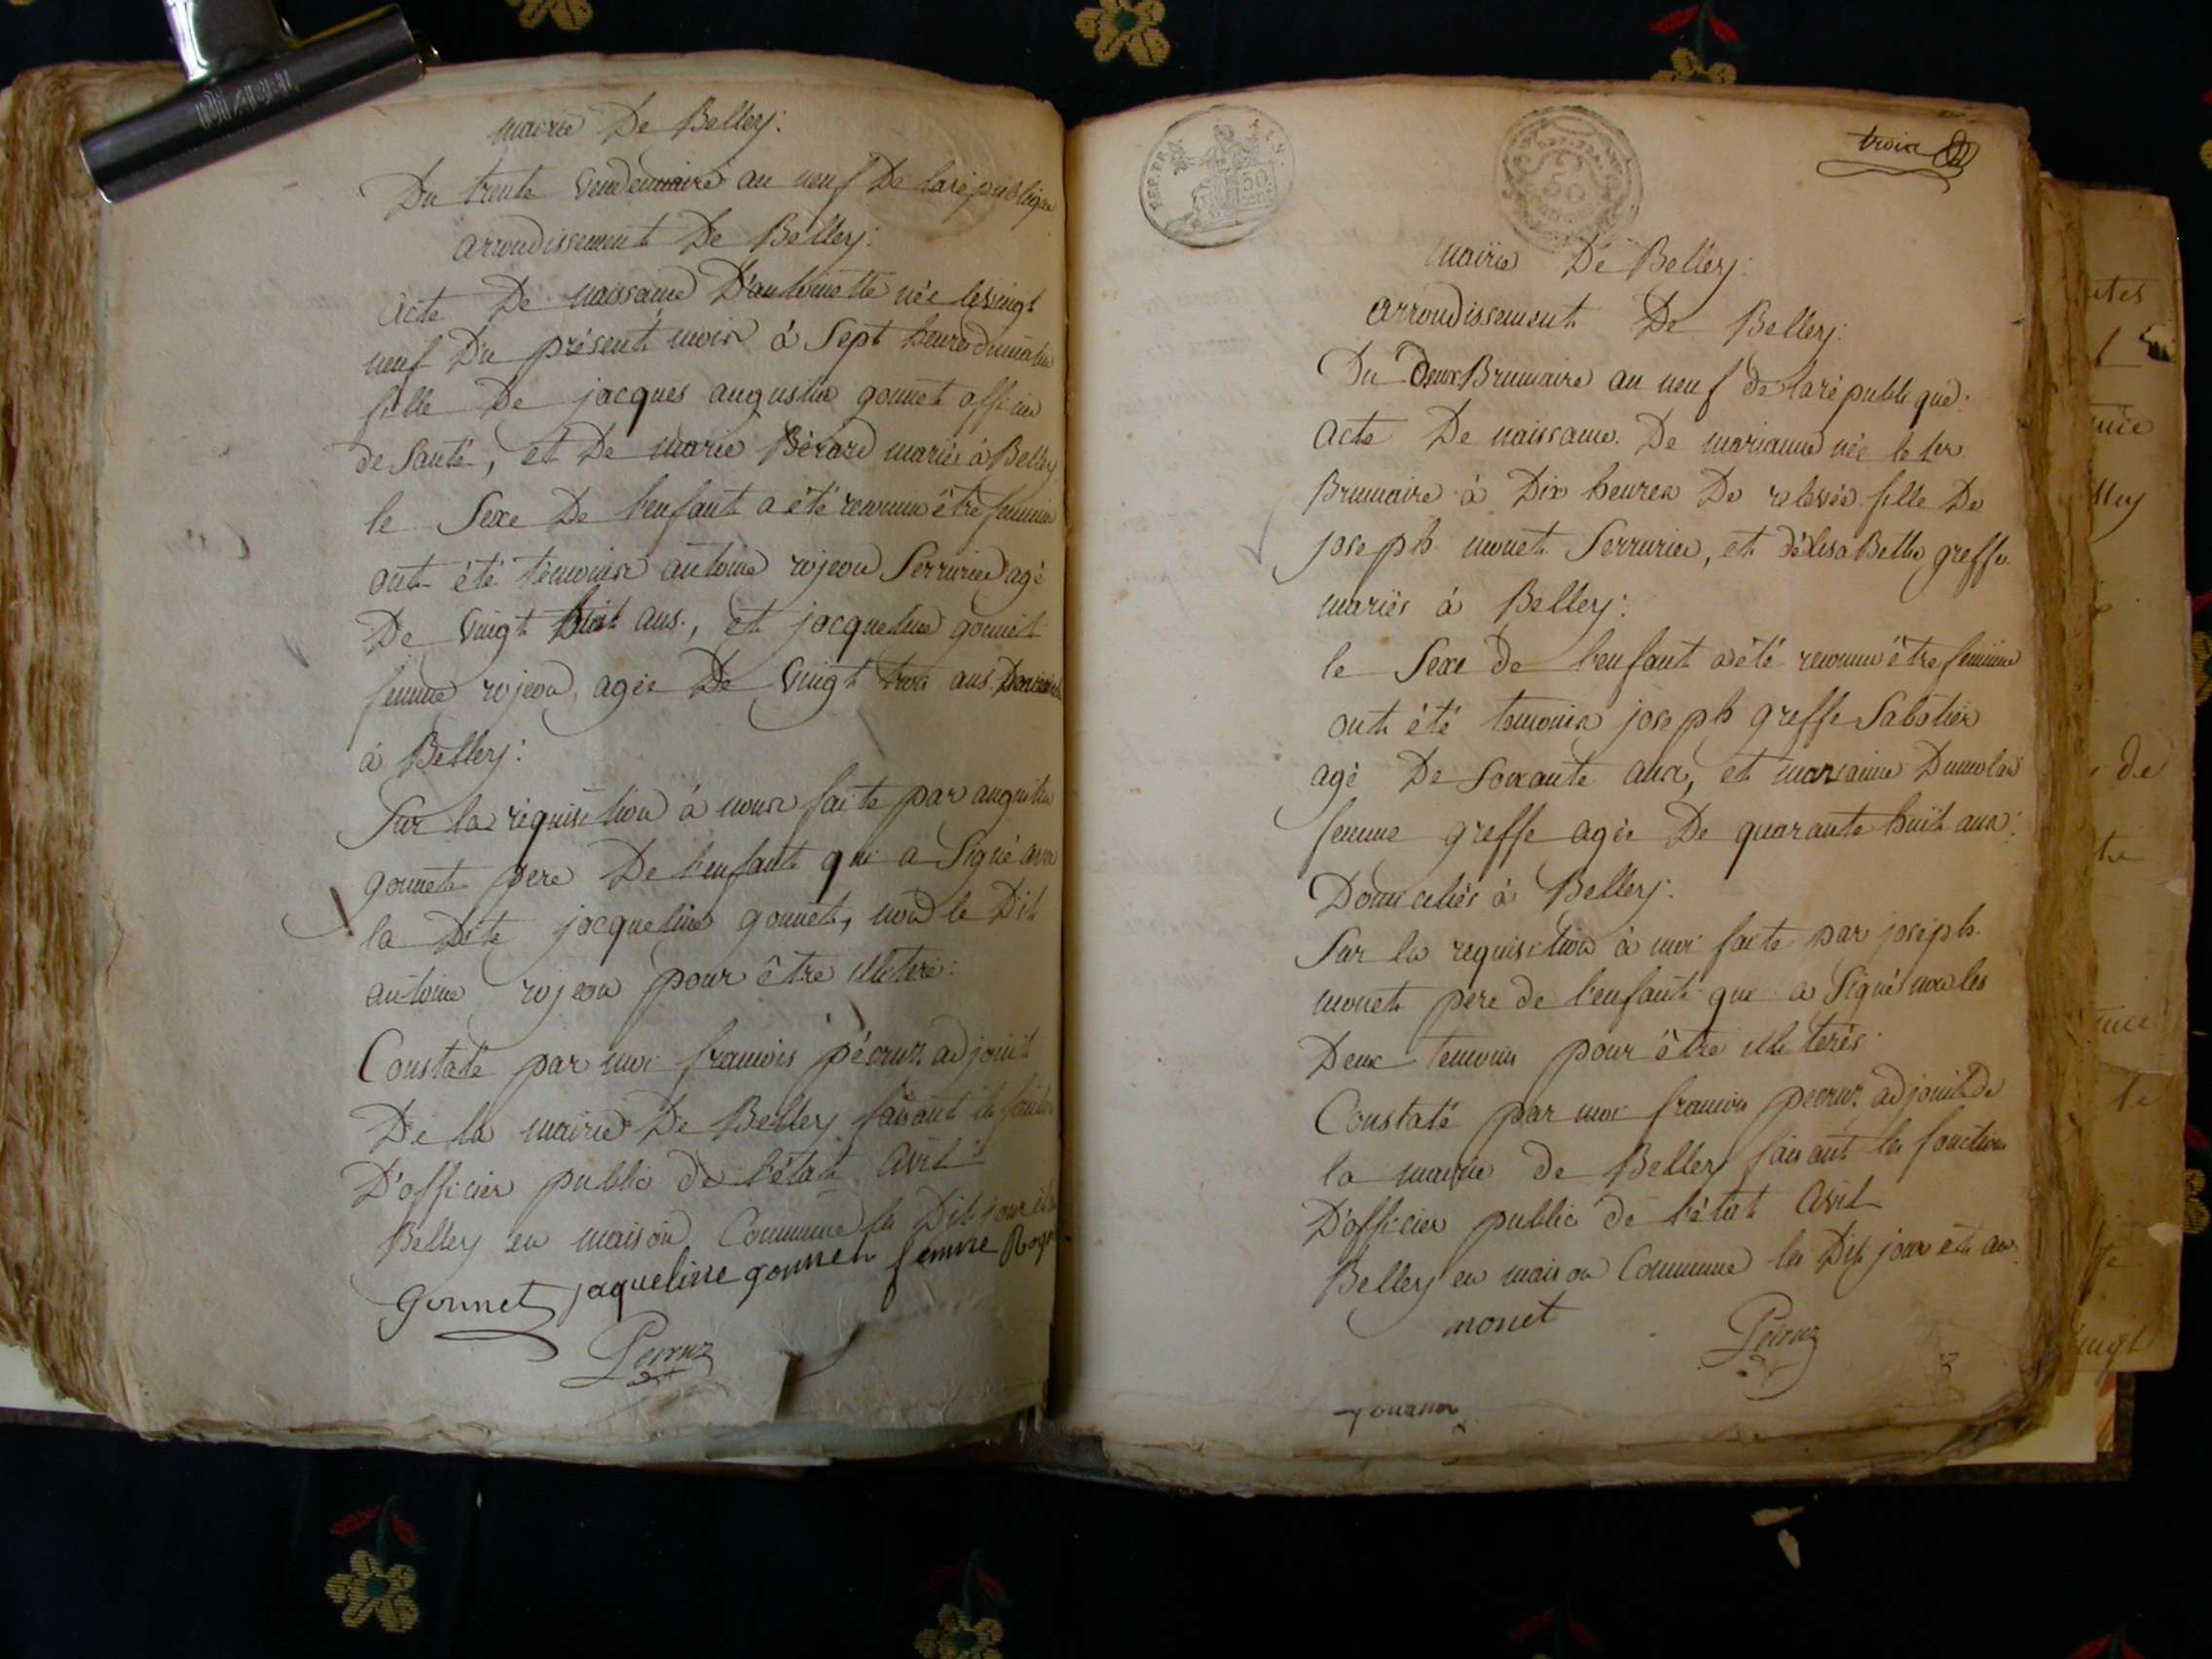 mairie De Belley:
Du trente vendemiaire an neuf De la republique
arrondissement De Belley:
Acte De naissance D'antoinette née le vingt
neuf Du présent mois à Sept heures du matin
fille De jacques augustin gonnet officier
de Santé, et De marie Bérard mariés à Belley
le Sexe De l'enfant a été reconnu être feminin
ont été témoins antoine rojeon Serrurier agé
De vingt huit ans., et jacqueline gonnet
femme rojeon, agée De vingt trois ans
à Belley:
Sur la réquisition à nous faite par augustin
gonnet pere De l'enfant qui a Signé avec
la Dite jacqueline gonnet, non le Dit
antoine rojeon pour être illiteré:
Constaté par moi francois pécruz adjoint
De la mairie De Belley faisant les fonctions
D'officier public de l'état civil
Belley en maison Commune les Dit jour et an
gonnet jaqueline gonnet femme
Pecruz
REP. FRA.
50
50
troix
mairie De Belley:
arrondissement De Belley:
Du Deux Brumaire an neuf de la république:
Acte De naissance. De marianne née le 1er.
Brumaire à Dix heures De relevée fille De
joseph. monet Serrurier, et d'élisabeth greffe
mariés à Belley:
le Sexe de l'enfant a été reconnu être feminin
ont été temoins joseph greffe Sabotier
agé De Soixante ans, et marianne Dumolas
femme greffe agée De quarante huit ans:
Domiciliés à Belley:
Sur la requisition à moi faite par joseph.
monet pere de l'enfant qui a Signé non les
Deux temoins pour être illiterés.
Constaté par moi francois pecruz adjoint de
la mairie de Belley faisant les fonctions
D'officier public de l'état civil
Belley en maison Commune les Dit jour et an.
monet
Pecruz
de
te